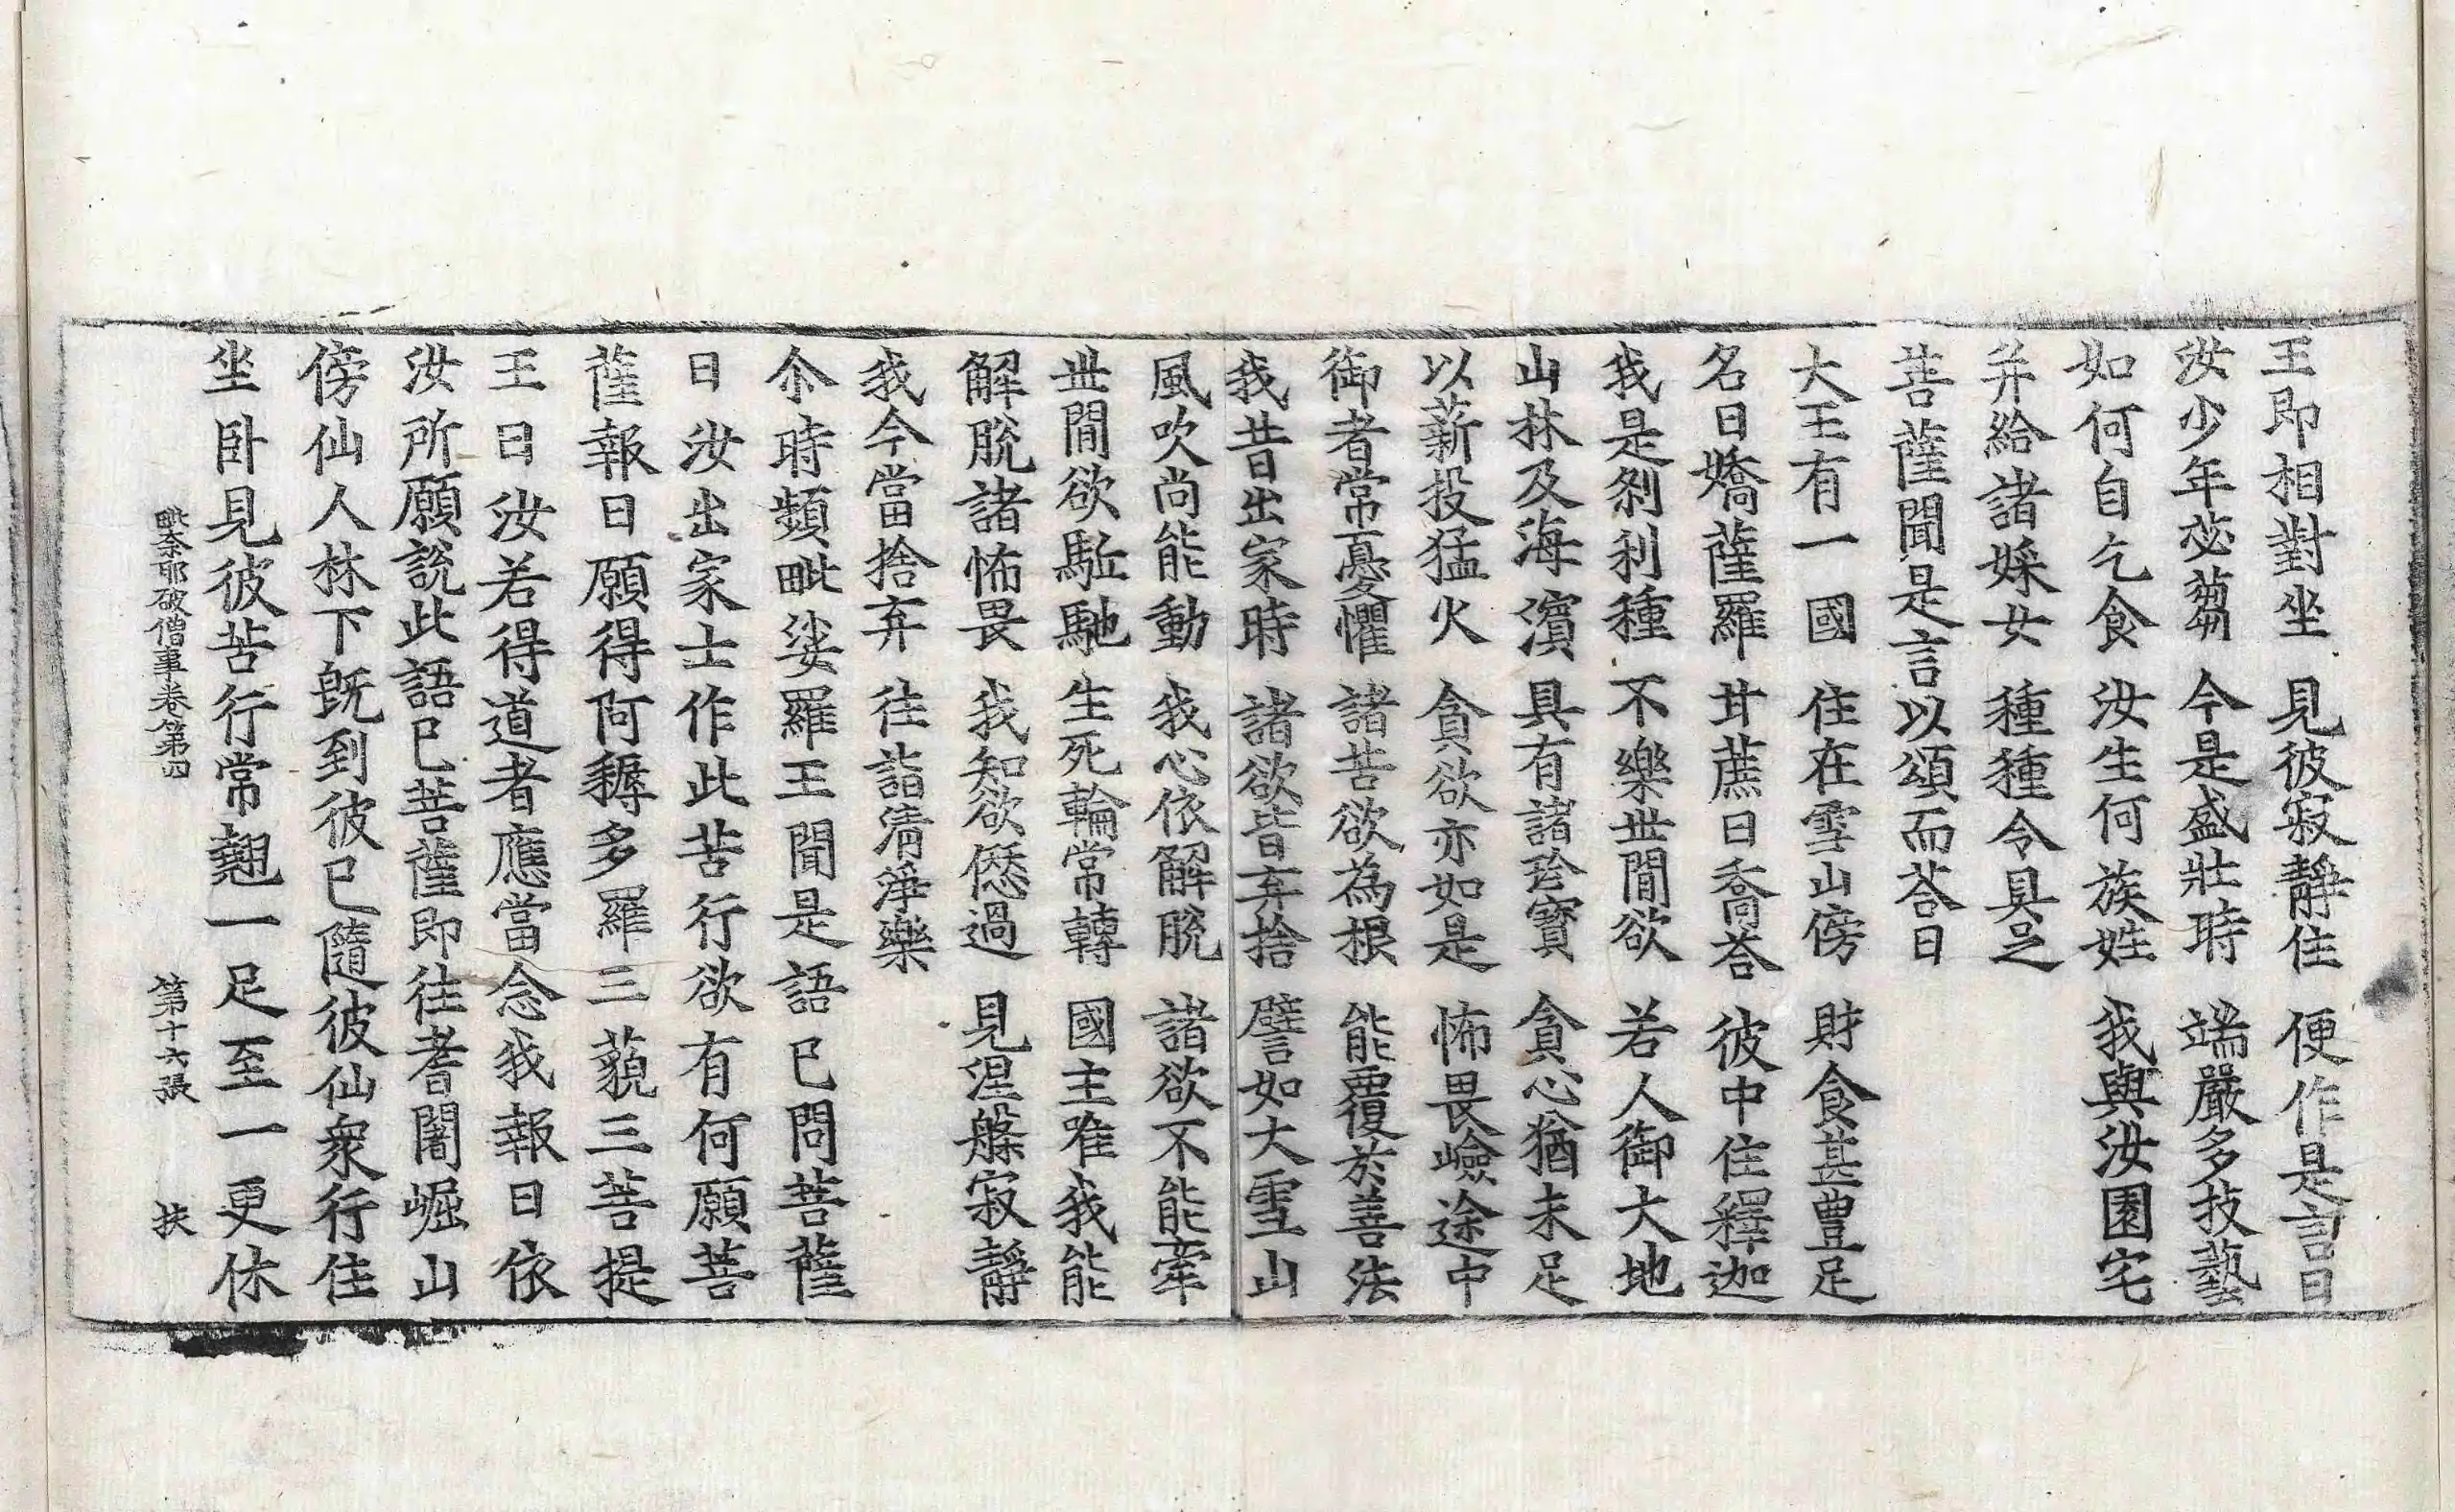 王即相對坐　見彼寂靜住　便作是言曰
汝少年苾蒭　今是盛壯時　端嚴多技藝
如何自乞食　汝生何族姓　我與汝園宅
并給諸婇女　種種令具足
菩薩聞是言以頌而荅曰
大王有一國　住在雪山傍　財食甚豊足
名曰嬌薩羅　甘蔗日喬荅　彼中住釋迦
我是剎利種　不樂世間欲　若人御大地
山林及海濵　具有諸珎寶　貪心猶未足
以薪投猛火　貪欲亦如是　怖畏嶮途中
御者常憂懼　諸苦欲為根　能覆於善法
我昔出家時　諸欲皆弃捨　譬如大雪山
風吹尚能動　我心依解脫　諸欲不能牽
世間欲駈馳　生死輪常轉　國主唯我能
解脫諸怖畏　我知欲𠎝過　見涅槃寂靜
我今當捨弃　往詣清淨樂
尒時頻毗娑羅王聞是語已問菩薩
曰汝出家士作此苦行欲有何願菩
薩報曰願得阿耨多羅三藐三菩提
王曰汝若得道者應當念我報曰依
汝所願說此語已菩薩即往耆闍崛山
傍仙人林下旣到彼已隨彼仙衆行住
坐卧見彼苦行常翹一足至一更休
毗奈耶破僧事卷第四　第十六張　扶